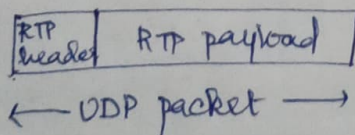 RTP
header
RTP payload
← UDP packet →